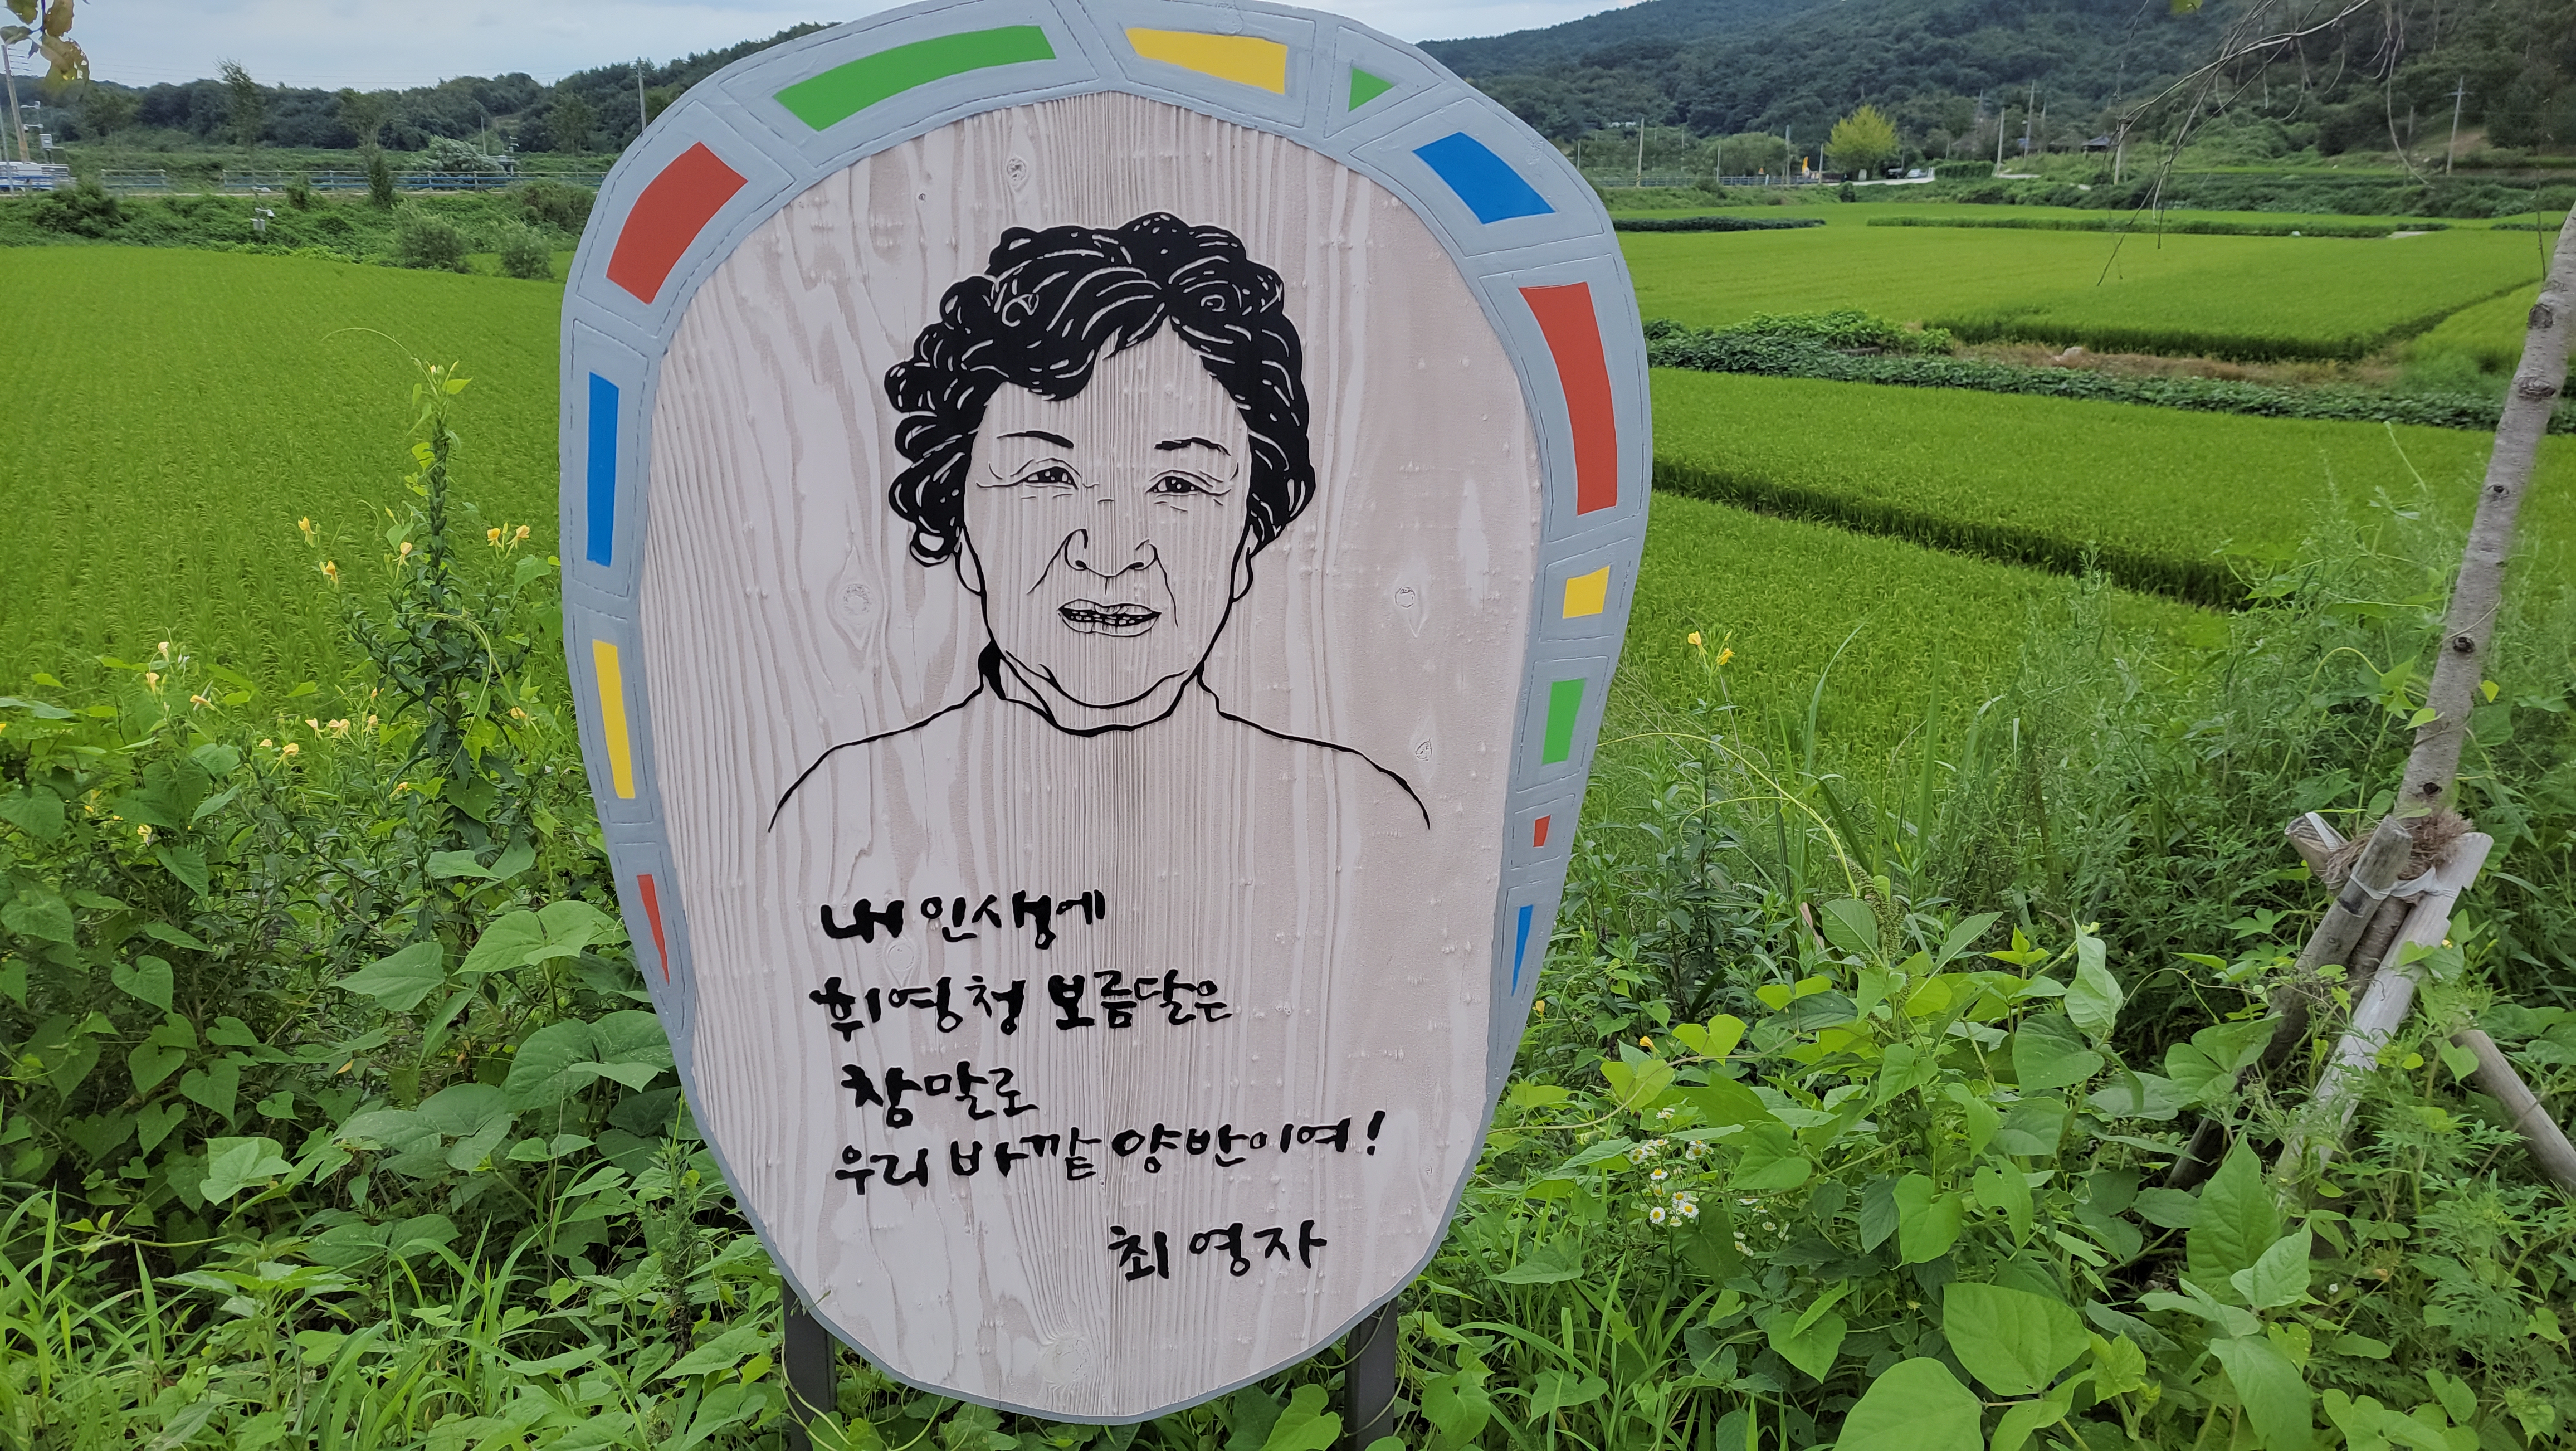 내 인생에
휘영청 보름달은
참말로
우리 바깥 양반이여!
최영자